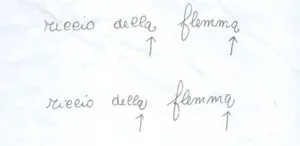 riccio della flemma
riccio della flemma